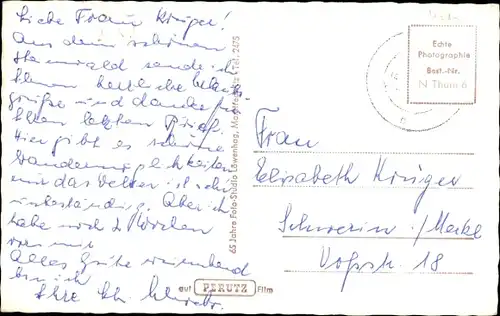 Liebe Frau Krüger!
Aus dem schönen
sende ich
Ihnen herzliche
grüße und danke für
Ihren letzten Brief.
Hier gibt es schöne
Wandermöglichkeiten
nur das Wetter ist sehr
unbeständig. Aber ich
habe noch 2 Wochen
vor mir
Alles Gute wünschend
bin ich
Ihre
65 Jahre Foto-Studio Löwenhag, Tel. 2475
auf PERUTZ Film
Echte
Photographie
Best.-Nr.
N Thum 6
Frau
Elisabeth Krüger
Schwerin /Meckl
Voßstr. 18